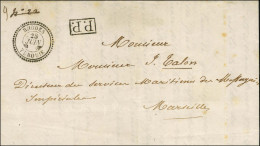 P.P.
Monsieur
Monsieur J. Talon
Directeur des services Maritimes des Messageries
Impériales
Marseille